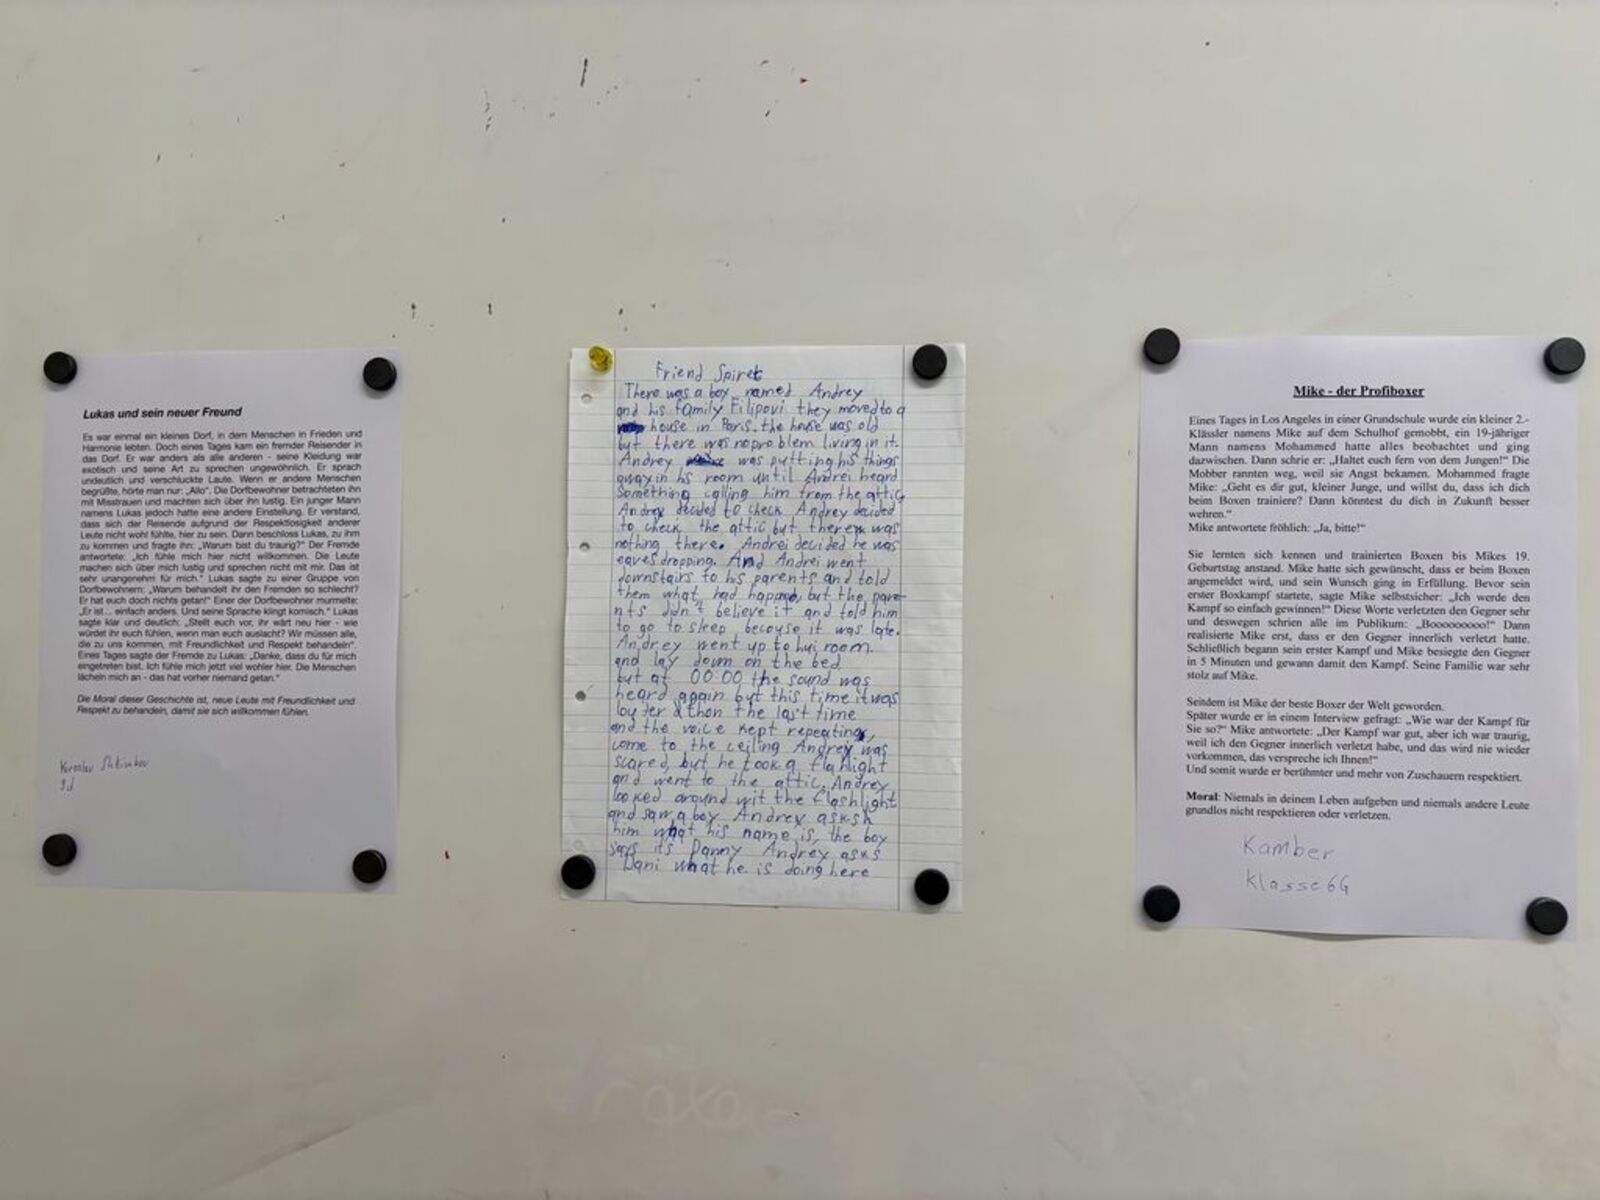 Lukas und sein neuer Freund
Es war einmal ein kleines Dorf, in dem Menschen in Frieden und
Harmonie lebten. Doch eines Tages kam ein fremder Reisender in
das Dorf. Er war anders als alle anderen - seine Kleidung war
exotisch und seine Art zu sprechen ungewöhnlich. Er sprach
undeutlich und verschluckte Laute. Wenn er andere Menschen
begrüßte, hörte man nur: „Allo“. Die Dorfbewohner betrachteten ihn
mit Misstrauen und machten sich über ihn lustig. Ein junger Mann
namens Lukas jedoch hatte eine andere Einstellung. Er verstand,
dass sich der Reisende aufgrund der Respektlosigkeit anderer
Leute nicht wohl fühlte, hier zu sein. Dann beschloss Lukas, zu ihm
zu kommen und fragte ihn: „Warum bist du traurig?“ Der Fremde
antwortete: „Ich fühle mich hier nicht willkommen. Die Leute
machen sich über mich lustig und sprechen nicht mit mir. Das ist
sehr unangenehm für mich.“ Lukas sagte zu einer Gruppe von
Dorfbewohnern: „Warum behandelt ihr den Fremden so schlecht?
Er hat euch doch nichts getan!“ Einer der Dorfbewohner murmelte:
„Er ist... einfach anders. Und seine Sprache klingt komisch.“ Lukas
sagte klar und deutlich: „Stellt euch vor, ihr wärt neu hier - wie
würdet ihr euch fühlen, wenn man euch auslacht? Wir müssen alle,
die zu uns kommen, mit Freundlichkeit und Respekt behandeln“.
Eines Tages sagte der Fremde zu Lukas: „Danke, dass du für mich
eingetreten bist. Ich fühle mich jetzt viel wohler hier. Die Menschen
lächeln mich an - das hat vorher niemand getan.“
Die Moral dieser Geschichte ist, neue Leute mit Freundlichkeit und
Respekt zu behandeln, damit sie sich willkommen fühlen.
9d
Friend Spiret
There was a boy named Andrey
and his family Filipovi they moved to a
house in Paris. the house was old
but there was no problem living in it.
Andrey was putting his things
away in his room until Andrei heard
Something calling him from the attic,
Andrey decided to check Andrey decided
to check the attic but there was
nothing there. Andrei decided he was
eavesdropping. And Andrei went
downstairs to his parents and told
them what had happend, but the pare-
nts didn't believe it and told him
to go to sleep becouse it was late.
Andrey went up to hui room.
and lay down on the bed
but at 00:00 the sound was
heard again but this time it was
louder thon the last time
and the voice kept repeating,
come to the ceiling Andrey was
scared, but he took a flahlight
and went to the attic. Andrey
looked around wit the flashlight
and saw a boy Andrey asksh
him what his name is, the boy
says its Danny Andrey asks
Dani what he is doing here
Mike - der Profiboxer
Eines Tages in Los Angeles in einer Grundschule wurde ein kleiner 2.-
Klässler namens Mike auf dem Schulhof gemobbt, ein 19-jähriger
Mann namens Mohammed hatte alles beobachtet und ging
dazwischen. Dann schrie er: „Haltet euch fern von dem Jungen!“ Die
Mobber rannten weg, weil sie Angst bekamen. Mohammed fragte
Mike: „Geht es dir gut, kleiner Junge, und willst du, dass ich dich
beim Boxen trainiere? Dann könntest du dich in Zukunft besser
wehren.“
Mike antwortete fröhlich: „Ja, bitte!“
Sie lernten sich kennen und trainierten Boxen bis Mikes 19.
Geburtstag anstand. Mike hatte sich gewünscht, dass er beim Boxen
angemeldet wird, und sein Wunsch ging in Erfüllung. Bevor sein
erster Boxkampf startete, sagte Mike selbstsicher: „Ich werde den
Kampf so einfach gewinnen!“ Diese Worte verletzten den Gegner sehr
und deswegen schrien alle im Publikum: „Booooooooo!“ Dann
realisierte Mike erst, dass er den Gegner innerlich verletzt hatte.
Schließlich begann sein erster Kampf und Mike besiegte den Gegner
in 5 Minuten und gewann damit den Kampf. Seine Familie war sehr
stolz auf Mike.
Seitdem ist Mike der beste Boxer der Welt geworden.
Später wurde er in einem Interview gefragt: „Wie war der Kampf für
Sie so?“ Mike antwortete: „Der Kampf war gut, aber ich war traurig,
weil ich den Gegner innerlich verletzt habe, und das wird nie wieder
vorkommen, das verspreche ich Ihnen!“
Und somit wurde er berühmter und mehr von Zuschauern respektiert.
Moral: Niemals in deinem Leben aufgeben und niemals andere Leute
grundlos nicht respektieren oder verletzen.
Kamber
Klasse 6G